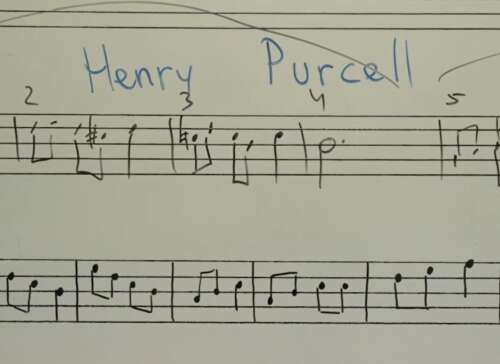 Henry Purcell
2 3 4 5